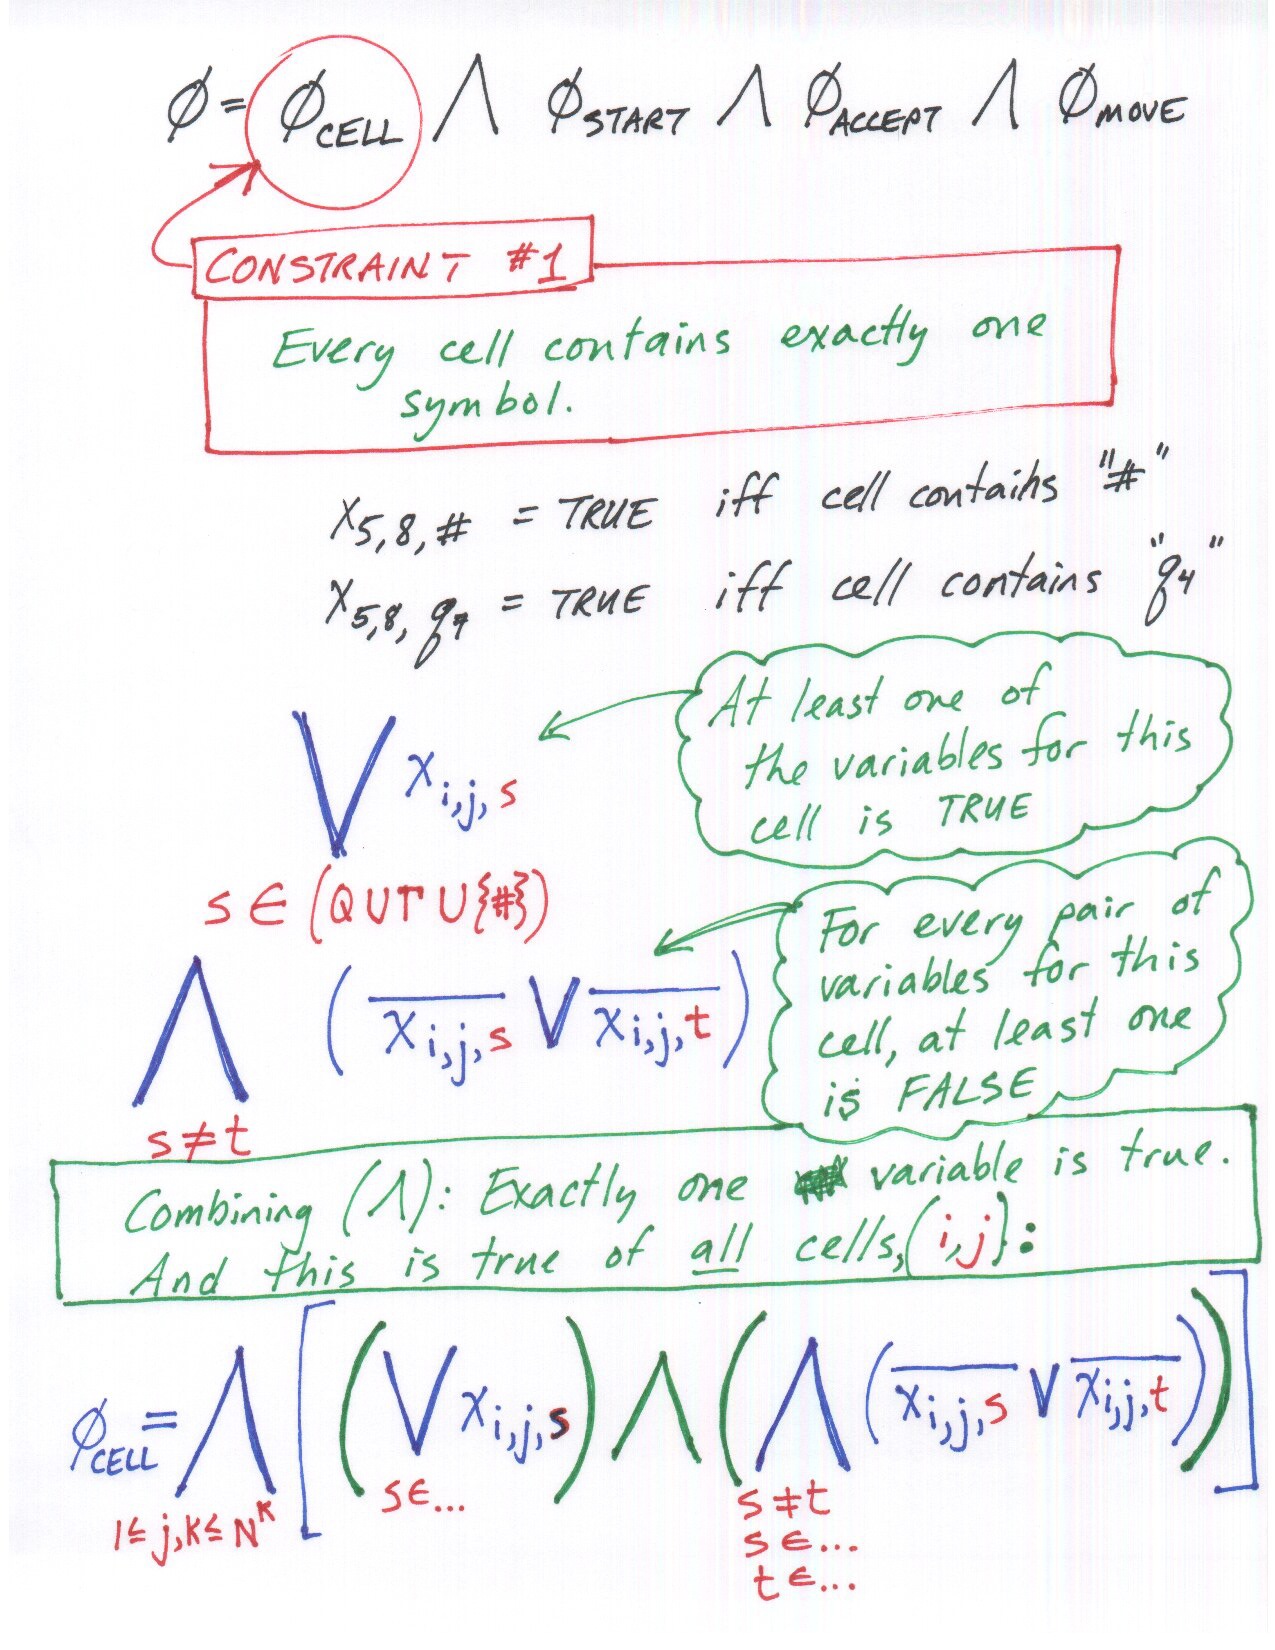 Ø = Ø_CELL ∧ Ø_START ∧ Ø_ACCEPT ∧ Ø_MOVE
CONSTRAINT #1
Every cell contains exactly one
symbol.
X_5,8,# = TRUE iff cell contains "#"
X_5,8,q_7 = TRUE iff cell contains "q_4"
⋁ x_i,j,s
s ∈ (Q ∪ Γ ∪ {#})
At least one of
the variables for this
cell is TRUE
⋀ ( \overline{x_i,j,s} ∨ \overline{x_i,j,t} )
s ≠ t
For every pair of
variables for this
cell, at least one
is FALSE
Combining (∧): Exactly one variable is true.
And this is true of all cells, (i,j}:
Ø_CELL = ⋀ [ ( ⋁ x_i,j,s ) ∧ ( ⋀ ( \overline{x_i,j,s} ∨ \overline{x_i,j,t} ) ) ]
1 ≤ j,k ≤ N^k s ∈ ... s ≠ t
s ∈ ...
t ∈ ...